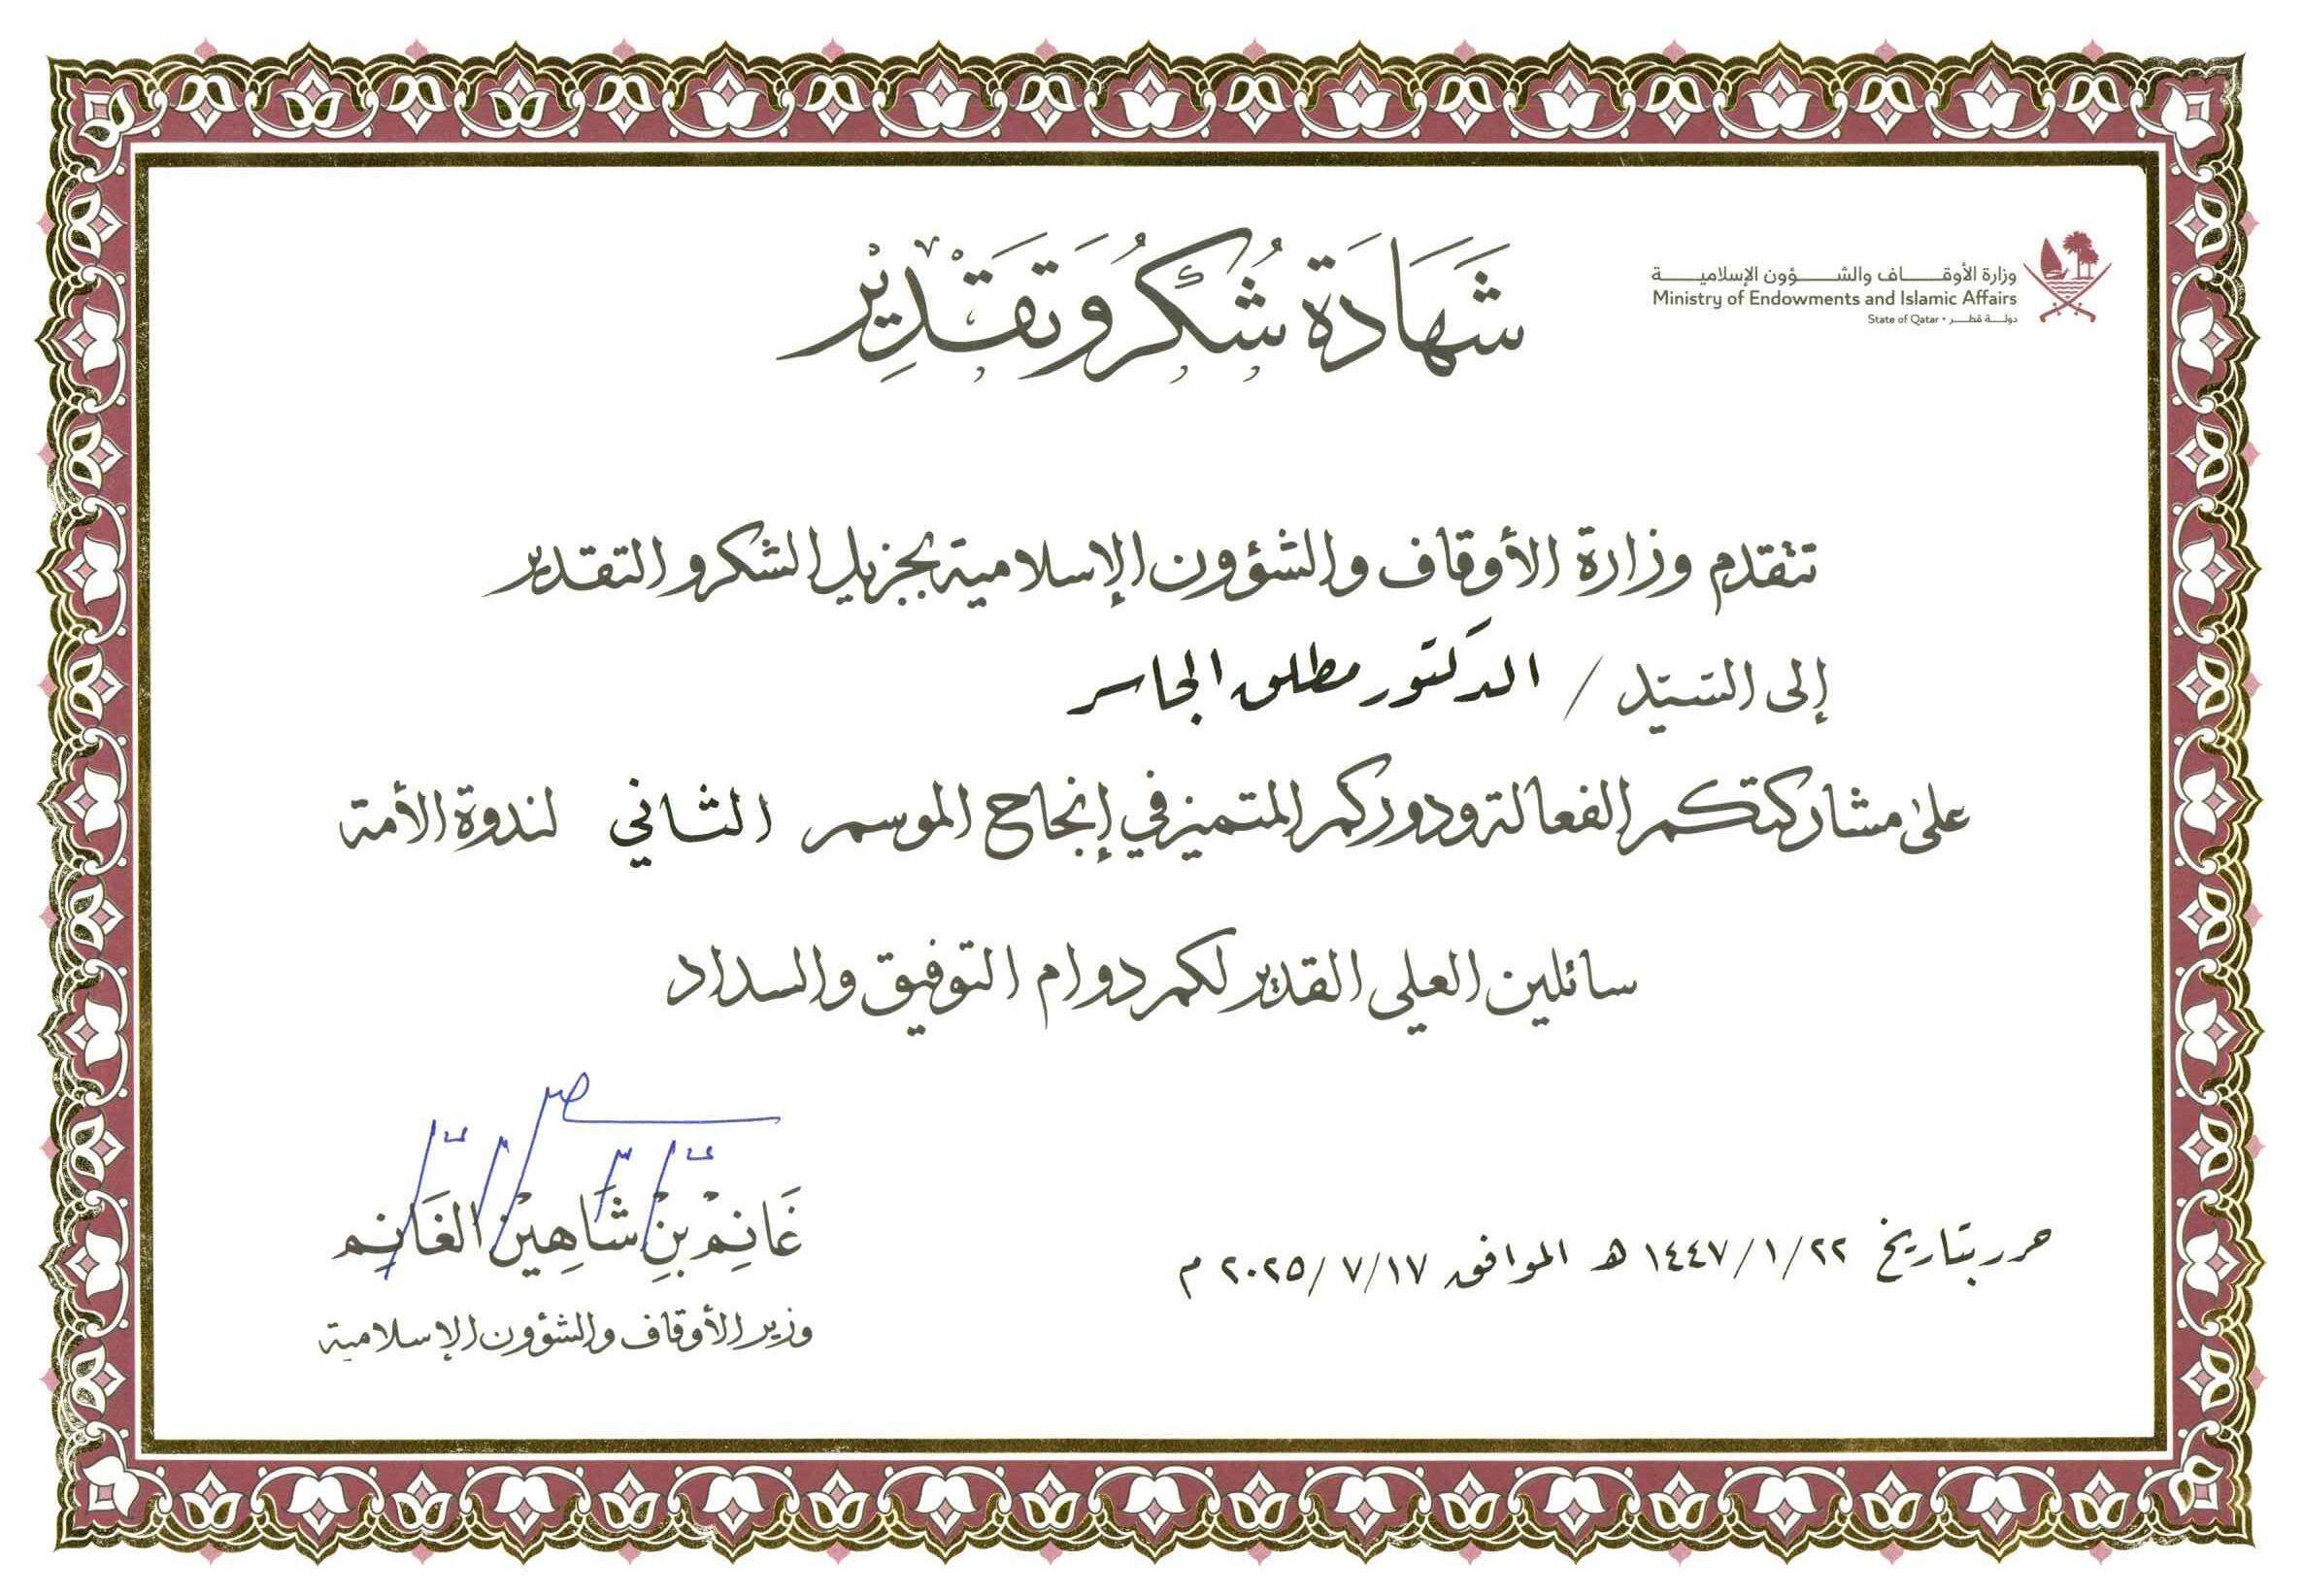 وزارة الأوقاف والشؤون الإسلامية
Ministry of Endowments and Islamic Affairs
State of Qatar • دولة قطر
شَهَادَة شُكْرُ وَتَقْدِيْر
تتقدم وزارة الأوقاف والشؤون الإسلامية بجزيل الشكر والتقدير
إلى السّيّد / الدكتور مطلق الجاسر
على مشاركتكم الفعالة ودوركم المتميز في إنجاح الموسم الثاني لندوة الأمة
سائلين العلي القدير لكم دوام التوفيق والسداد
حرر بتاريخ ٢٢/١/١٤٤٧ هـ الموافق ١٧/٧/٢٠٢٥ م
غَانِمْ بِنْ شَاهِيْن الغَانِم
وزير الأوقاف والشؤون الإسلامية